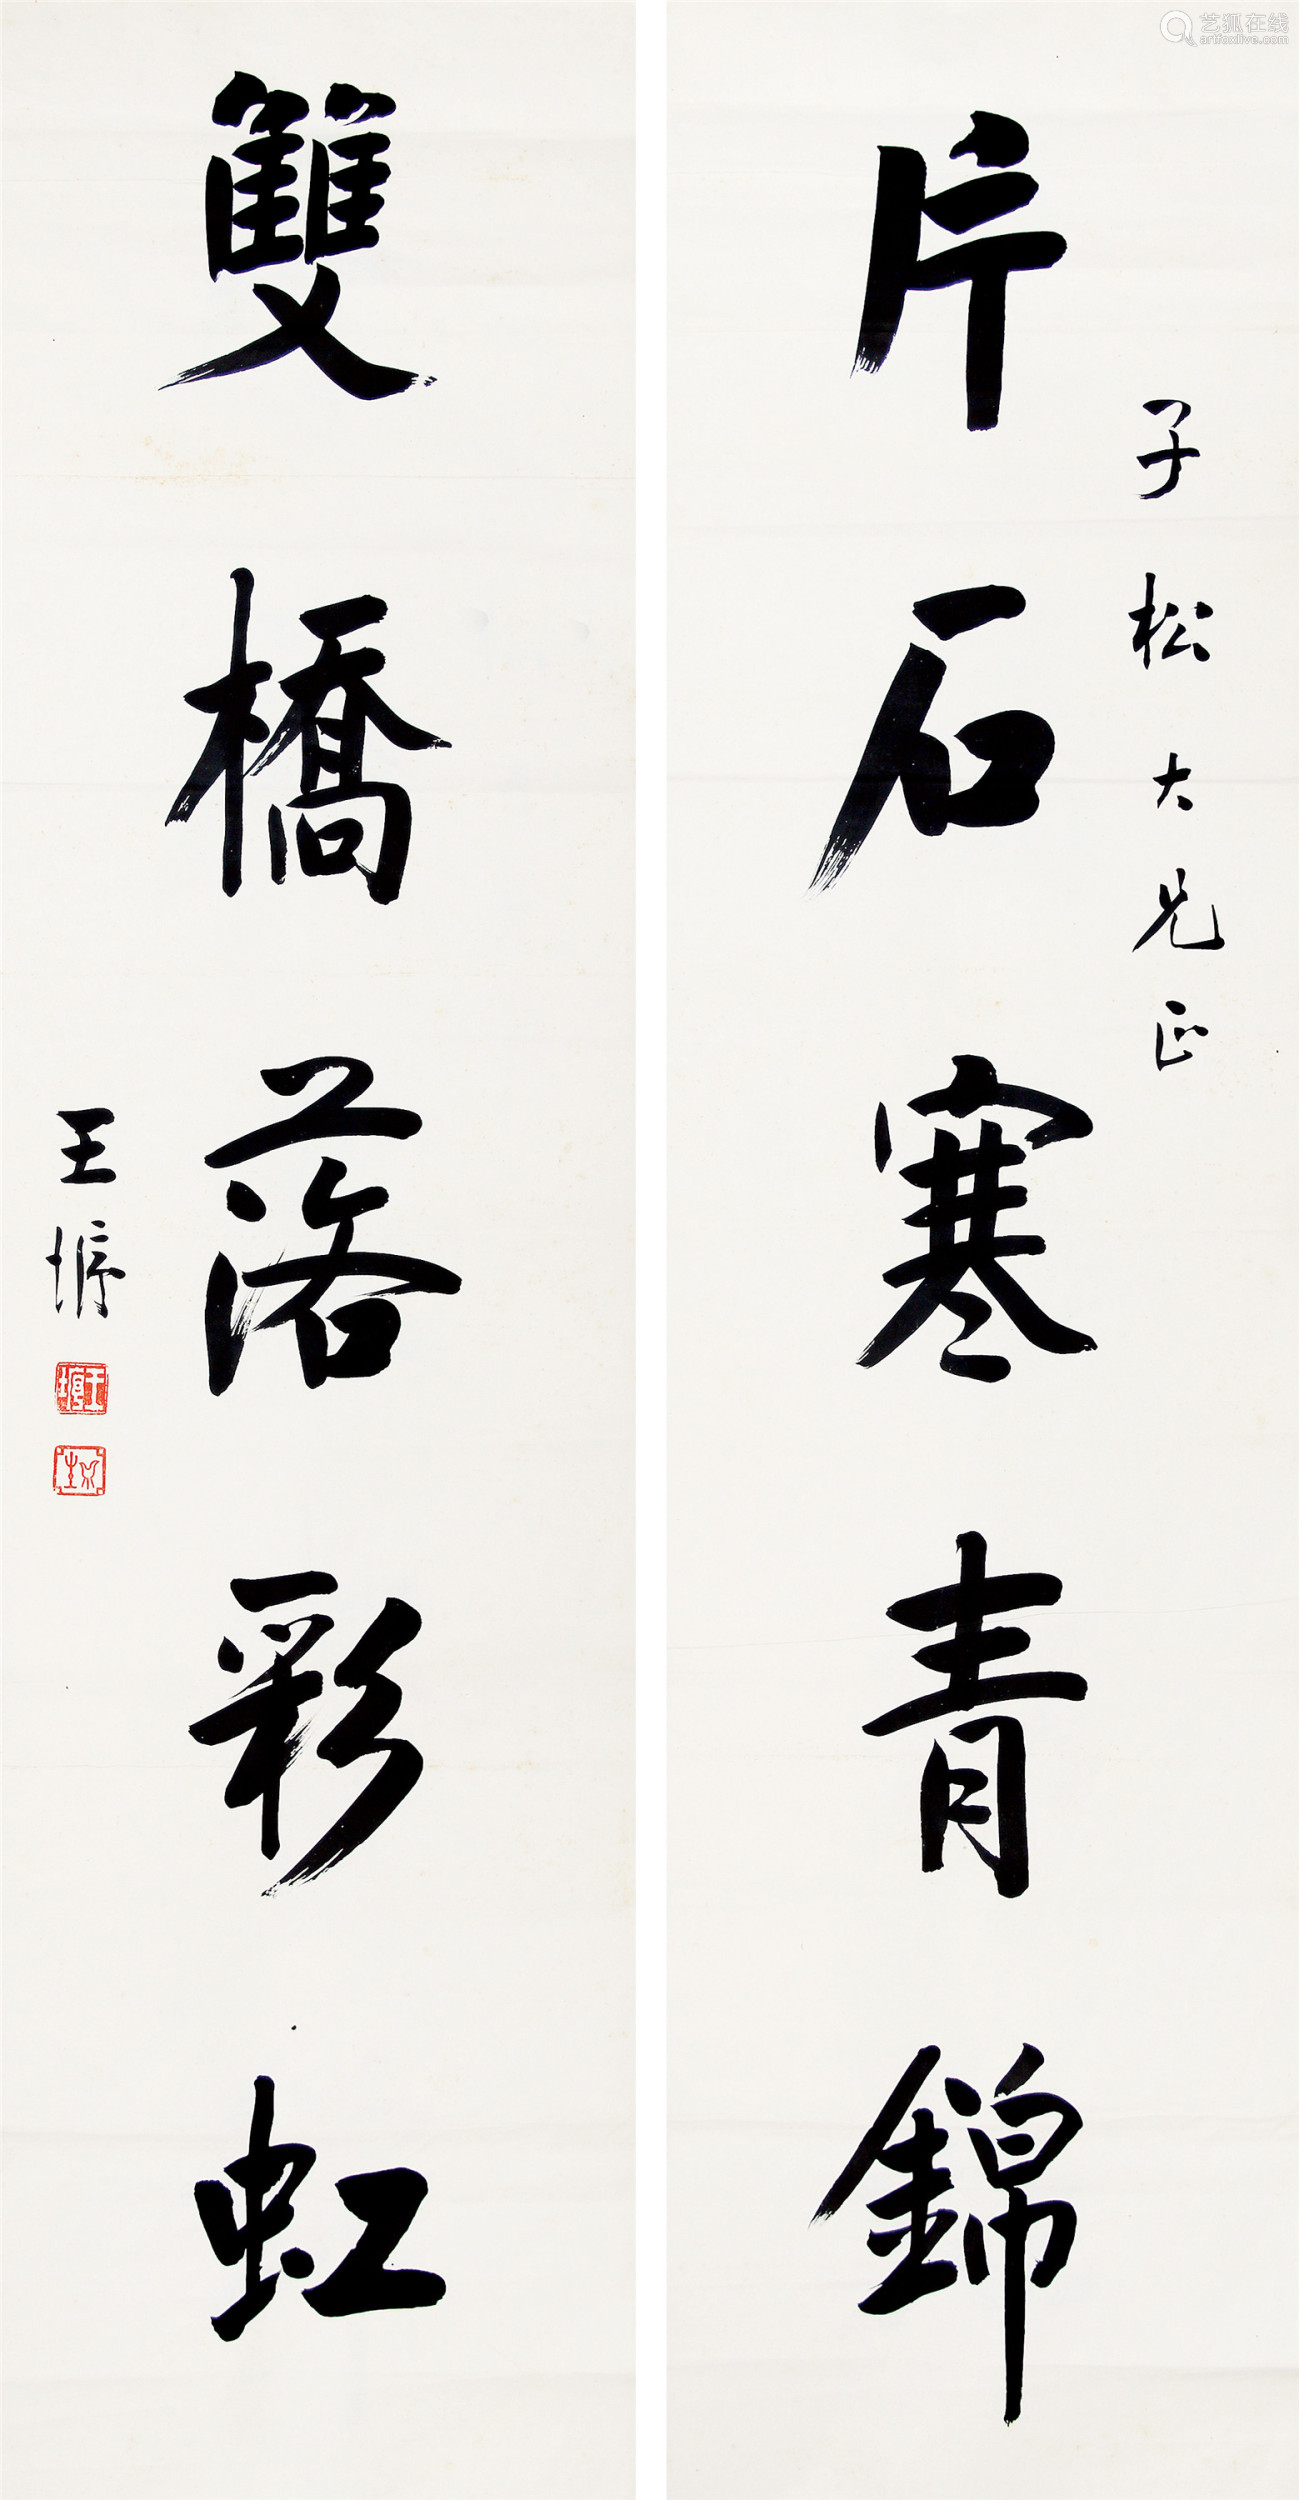 艺狐在线
artfoxlive.com
子松大兄正
片石寒青錦
雙橋落彩虹
王垿
王垿
爵生